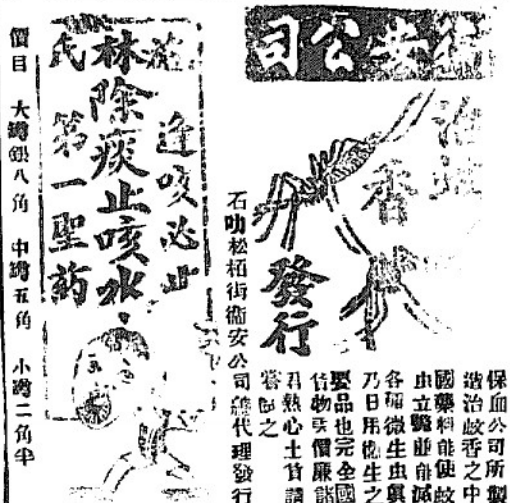 衛安公司
發行
保血公司所製
治蚊香之中
國藥料能使蚊
虫立斃並能滅
各種微生虫真
乃日用衛生之
要品也完全國
貨物美價廉諸
君熱心土貨請
嘗試之
石叻松栢街衛安公司總代理發行
林氏
逢咳必止
除痰止咳水
第一聖葯
價目 大罇銀八角 中罇五角 小罇二角半